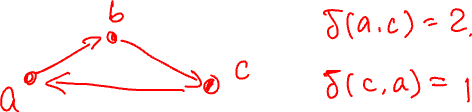 b
a
c
δ(a,c) = 2.
δ(c,a) = 1